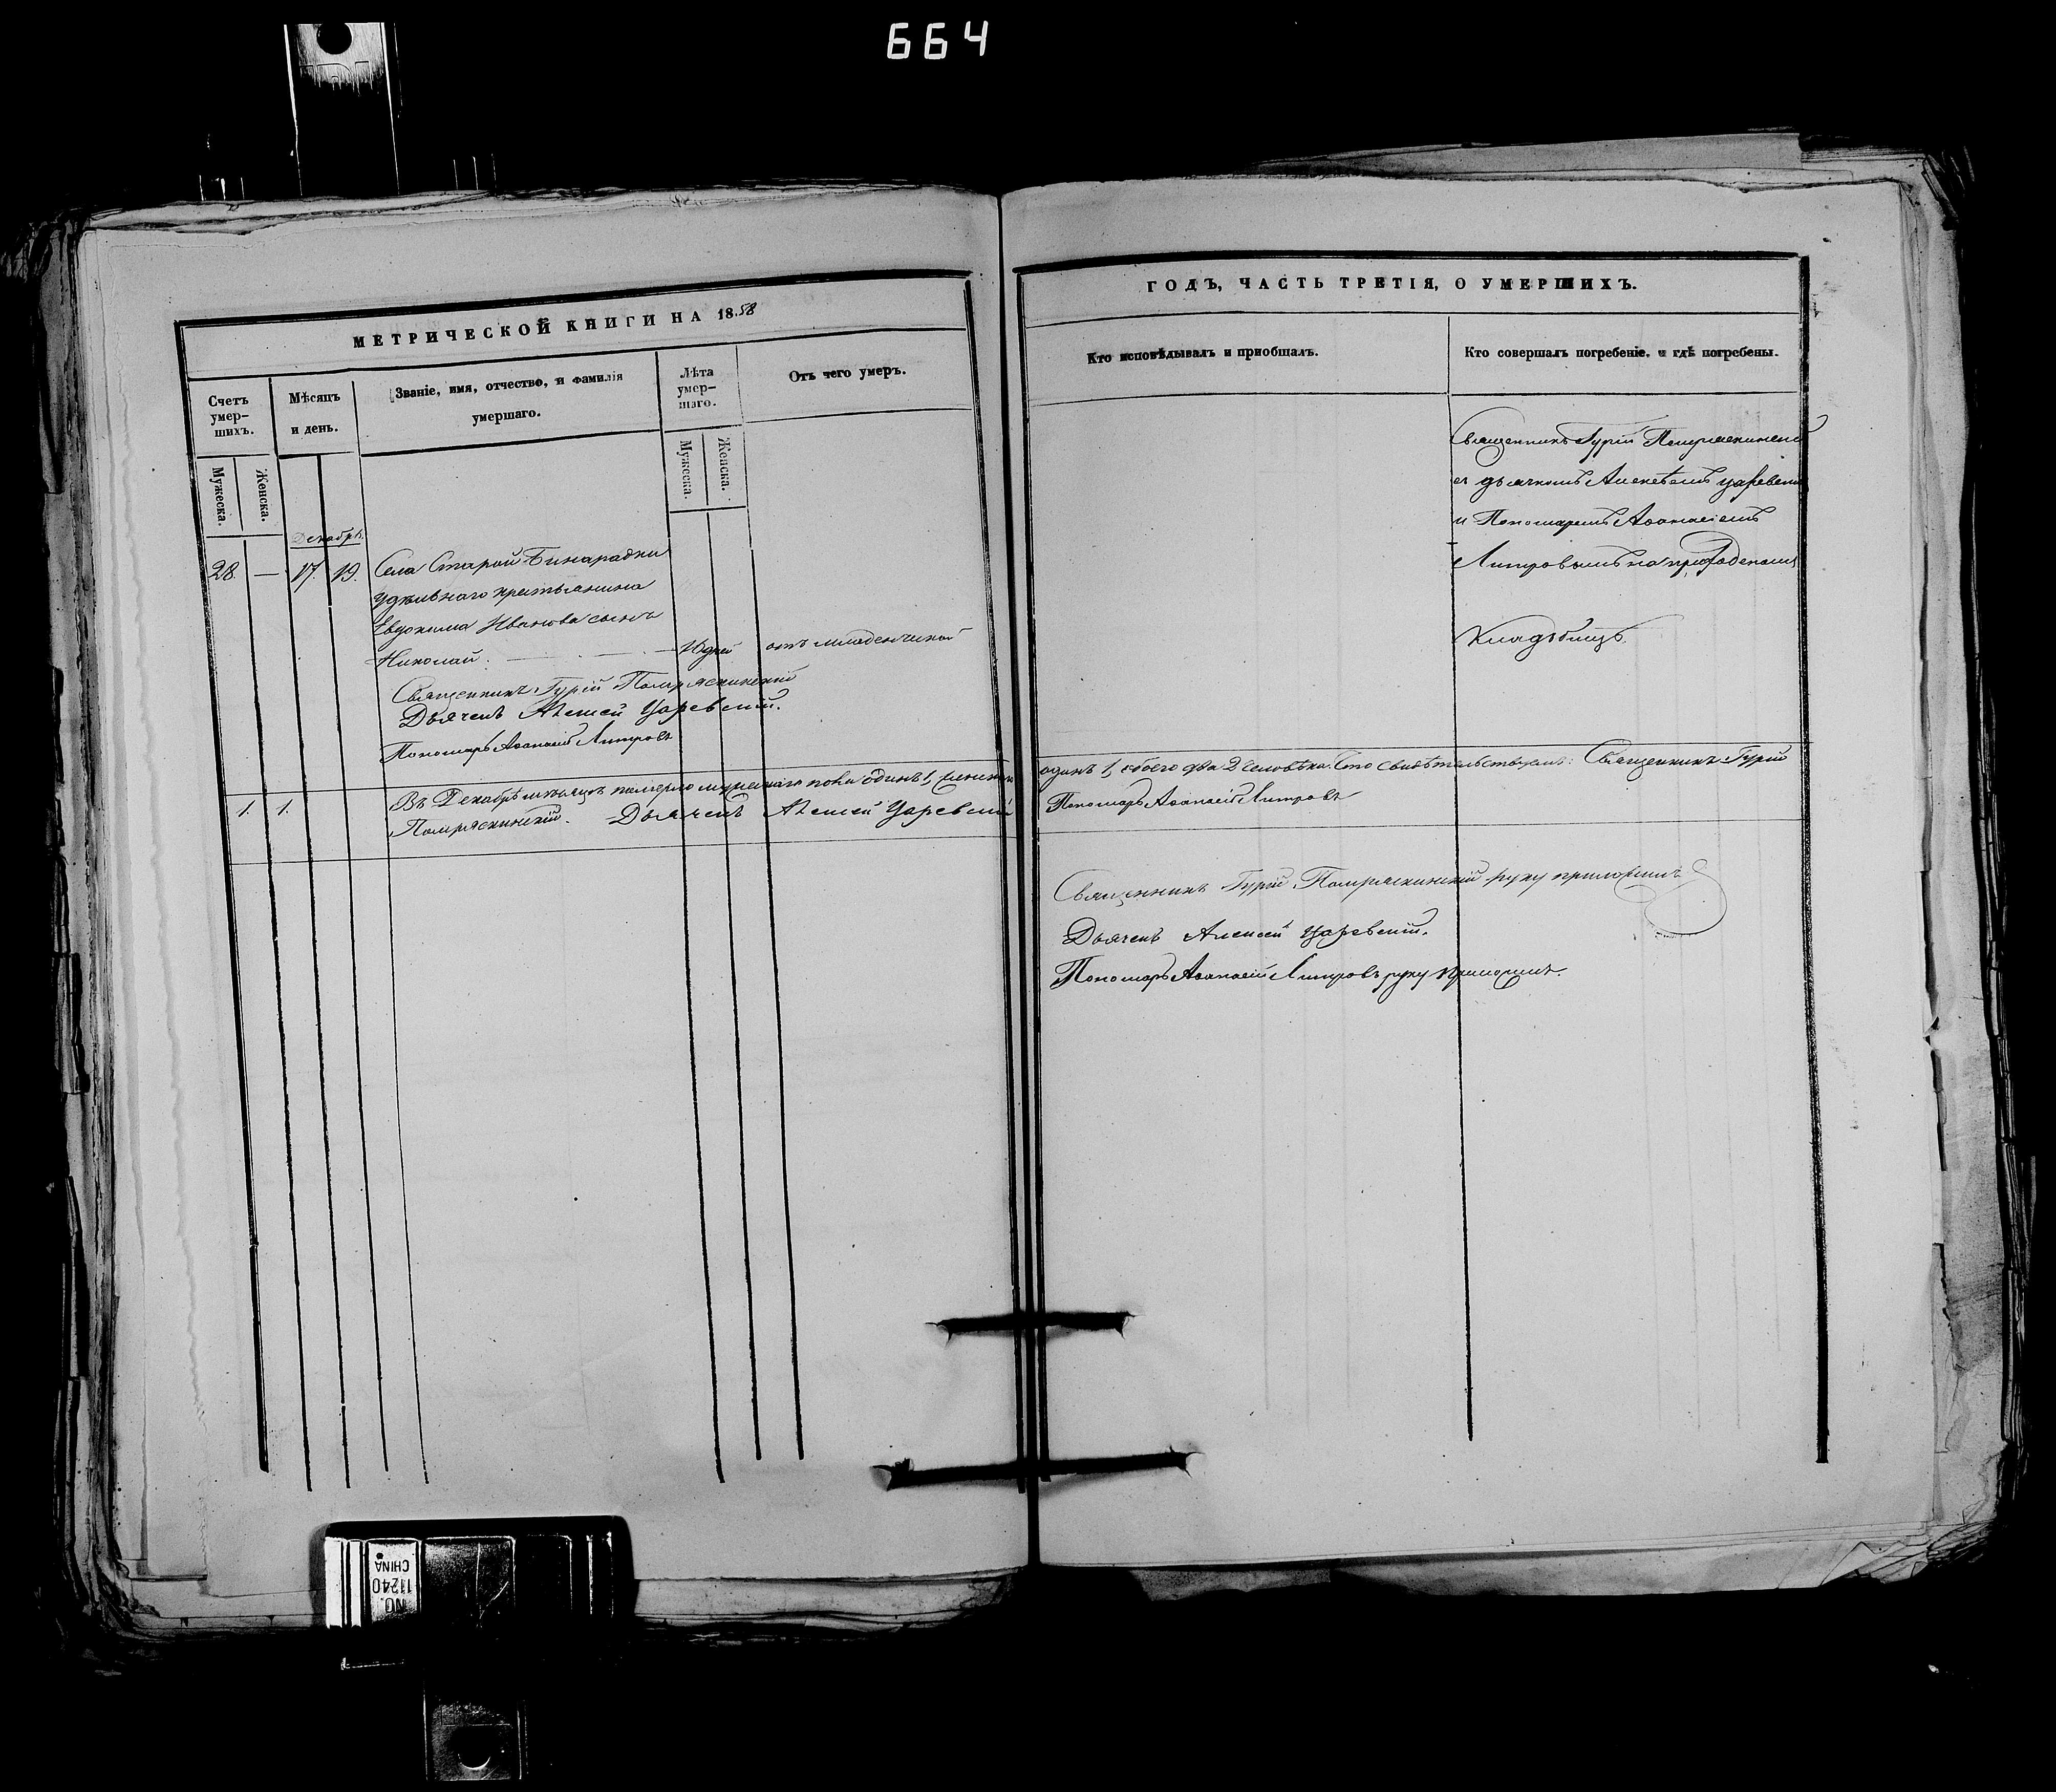 664
МЕТРИЧЕСКОЙ КНИГИ НА 1858
Счетъ умер-шихъ.
Мѣсяцъ и день.
Званіе, имя, отчество, и фамилія умершаго.
Лѣта умер-шаго.
Отъ чего умеръ.
Мужеска.
Женска.
Мужеска.
Женска.
Декабрь.
28. — 17. 19. Села Старой Бинарадки
удѣльнаго крестьянина
Евдокима Иванова сынъ
Николай. — дней отъ младенческой
Священникъ Гурій Помряскинскій
Дьячекъ Алексей Царевскій.
Пономарь Аѳанасій Литровъ
1. 1. Въ Декабрѣ мѣсяцѣ померло мужескаго пола одинъ 1, женскаго
Помряскинскій. Дьячекъ Алексей Царевскій
ГОДЪ, ЧАСТЬ ТРЕТІЯ, О УМЕРШИХЪ.
Кто исповѣдывалъ и пріобщалъ.
Кто совершалъ погребеніе, и гдѣ погребены.
Священникъ Гурій Помряскинскій
съ дьячкомъ Алексѣемъ Царевскимъ
и Пономаремъ Аѳанасіемъ
Литровымъ на приходскомъ
Кладбищѣ.
одинъ 1, обоего два 2 человѣка. Въ свидѣтельствуемъ: Священникъ Гурій
Пономарь Аѳанасій Литровъ
Священникъ Гурій Помряскинскій руку приложилъ
Дьячекъ Алексей Царевскій.
Пономарь Аѳанасій Литровъ руку приложилъ.
NO.
11240
CHINA